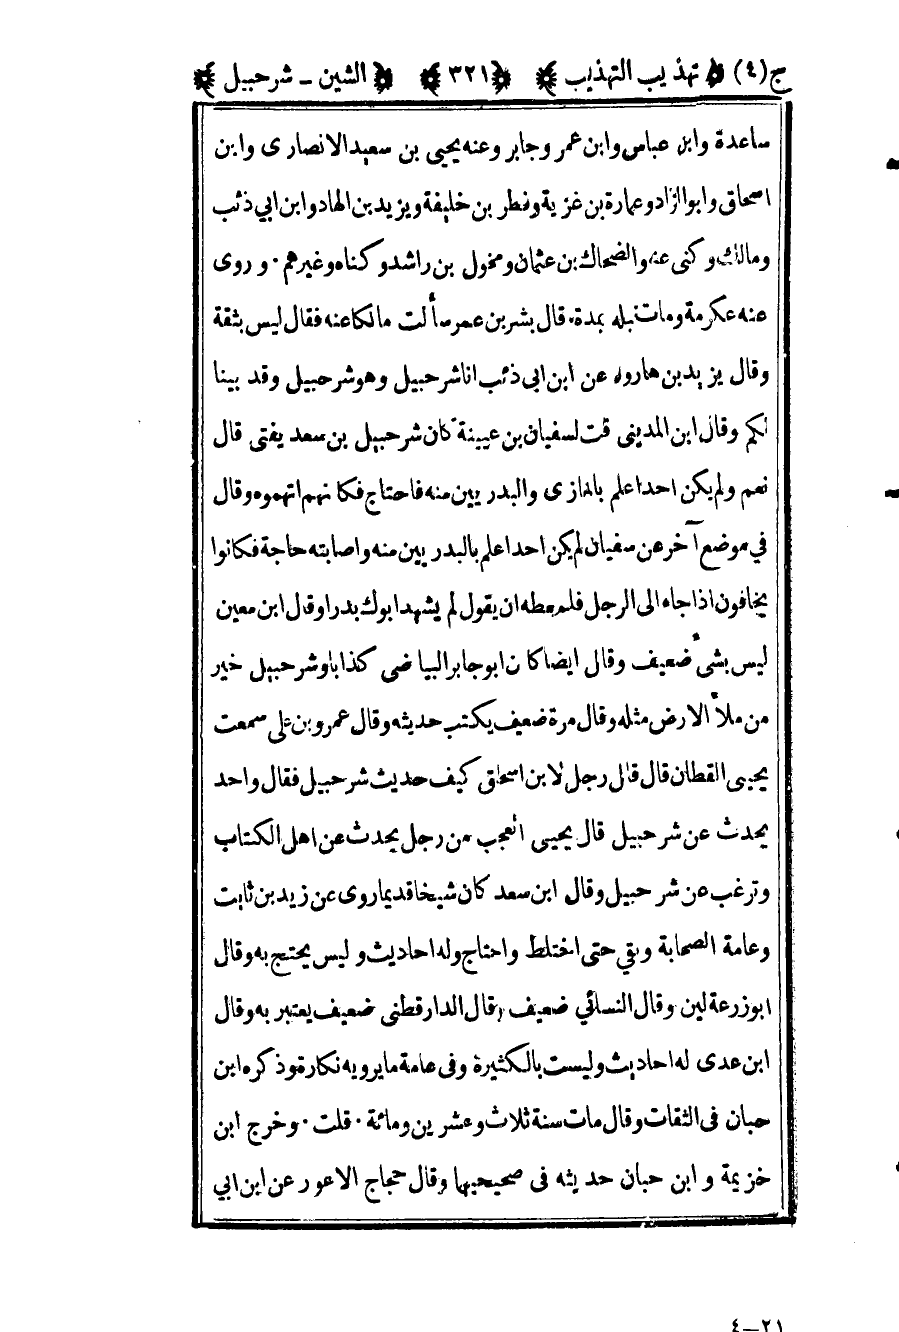 ج(٤) تهذيب التهذيب ٣٢١ الشين ـ شرحبيل
ساعدة وابن عباس وابن عمر وجابر وعنه يحيى بن سعيد الانصارى وابن
اسحاق وابو الزاد وعمارة بن غزية وفطر بن خليفة ويزيد بن الهاد وابن ابي ذئب
ومالك وكنى عنه والضحاك بن عثمان ومخول بن راشد وكناه وغيرهم · وروى
عنه عكرمة ومات قبله بمدة · قال بشر بن عمر سألت مالكا عنه فقال ليس بثقة
وقال يزيد بن هارون عن ابن ابى ذئب انا شرحبيل وهو شرحبيل وقد بينا
لكم وقال ابن المدينى قت لسفيان بن عيينة كان شرحبيل بن سعد يفتى قال
نعم ولم يكن احد اعلم بالمغازى والبدريين منه فاحتاج فكانهم اتهموه وقال
في موضع آخر عن سفيان لم يكن احد اعلم بالبدريين منه واصابته حاجة فكانوا
يخافون اذا جاء الى الرجل فلم يعطه ان يقول لم يشهد ابوك بدرا وقال ابن معين
ليس بشئ ضعيف وقال ايضا كان ابو جابر البياضى كذابا وشرحبيل خير
من ملأ الارض مثله وقال مرة ضعيف يكتب حديثه وقال عمرو بن على سمعت
يحيى القطان قال قال رجل لابن اسحاق كيف حديث شرحبيل فقال واحد
يحدث عن شرحبيل قال يحيى العجب من رجل يحدث عن اهل الكتاب
وترغب عن شرحبيل وقال ابن سعد كان شيخا قديما روى عن زيد بن ثابت
وعامة الصحابة وبقي حتى اختلط واحتاج وله احاديث وليس يحتج به وقال
ابو زرعة لين وقال النسائي ضعيف وقال الدارقطنى ضعيف يعتبر به وقال
ابن عدى له احاديث وليست بالكثيرة وفى عامة ما يرويه نكارة وذكره ابن
حبان فى الثقات وقال مات سنة ثلاث وعشرين ومائة · قلت · وخرج ابن
خزيمة و ابن حبان حديثه فى صحيحيهما وقال حجاج الاعور عن ابن ابي
٢١—٤